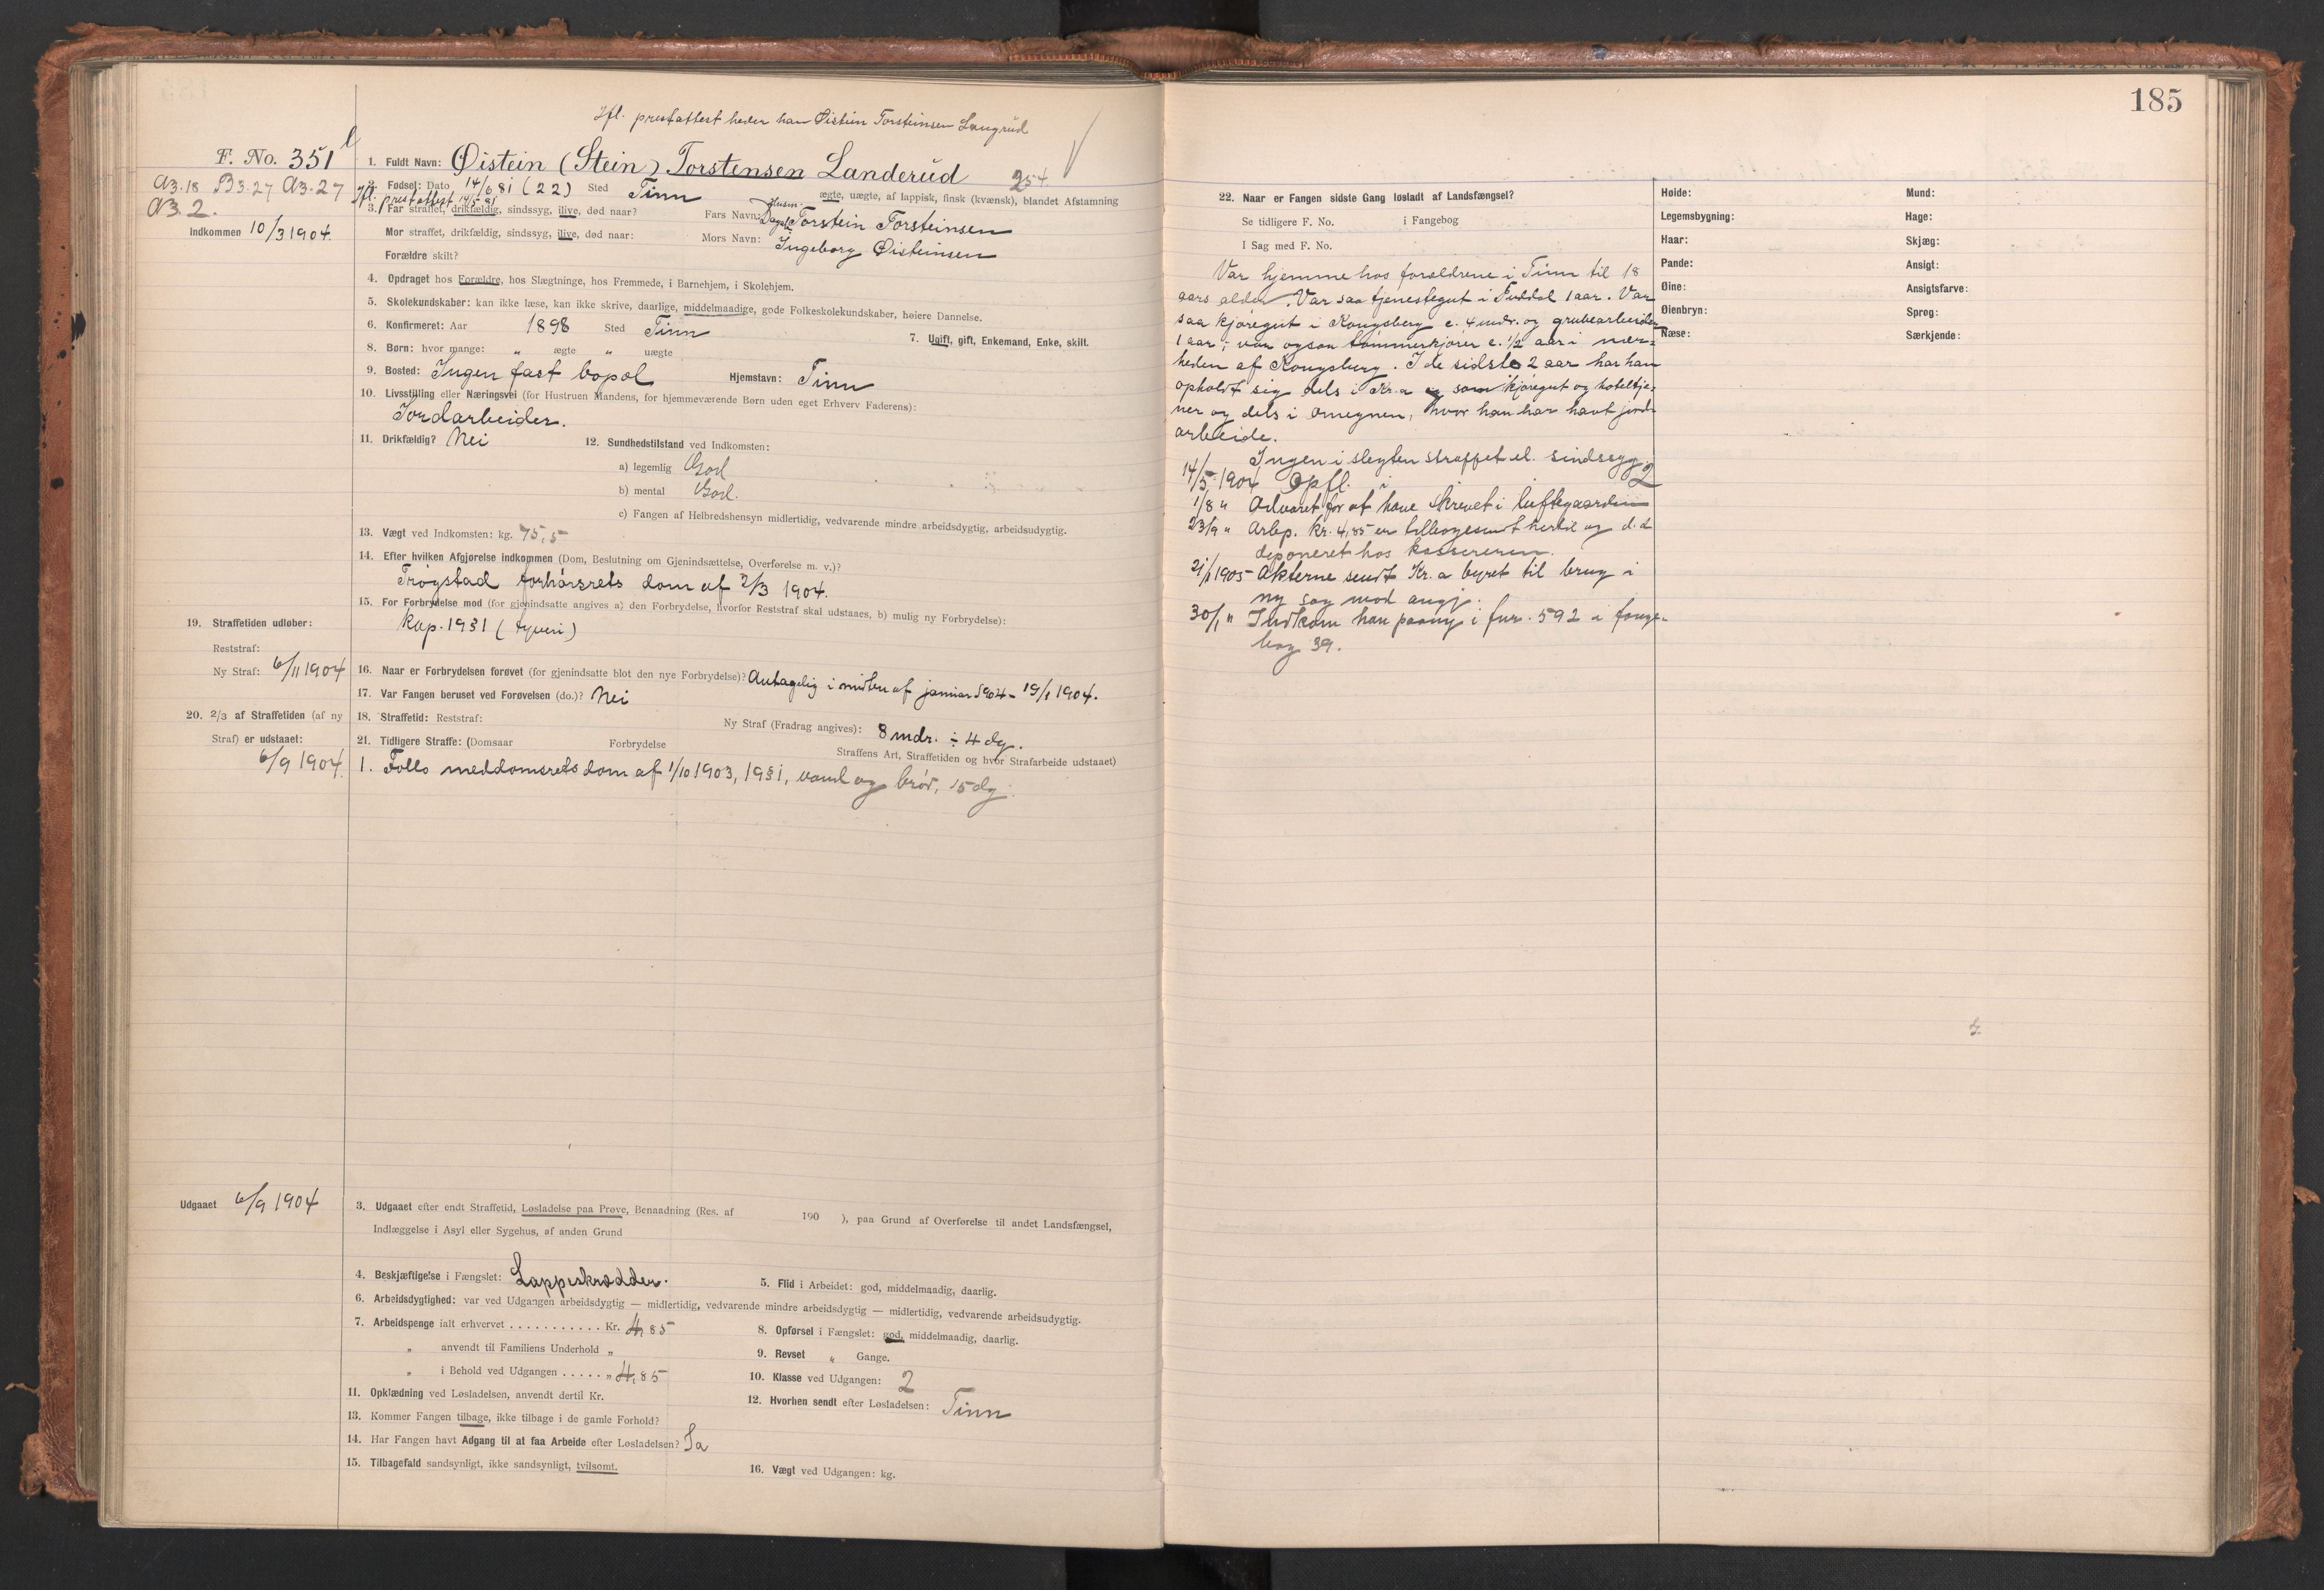 185
Ifl. prestattest heder han Øistein Torsteinsen Langrud
F. No. 351
1. Fuldt Navn: Øistein (Stein) Torstensen Landerud 254.
A3.18 B3.27 A3.27
A3.2.
2. Fødsel: Dato 14/6 81 (22) Sted Tinn ægte, uægte, af lappisk, finsk (kvænsk), blandet Afstamning
Ifl. prestattest 14/5 81
3. Far straffet, drikfældig, sindssyg, ilive, død naar? Fars Navn: Husm. Torstein Torsteinsen
Indkommen 10/3 1904.
Mor straffet, drikfældig, sindssyg, ilive, død naar: Mors Navn: Ingeborg Øisteinsen
Forældre skilt?
4. Opdraget hos Forældre, hos Slægtninge, hos Fremmede, i Barnehjem, i Skolehjem.
5. Skolekundskaber: kan ikke læse, kan ikke skrive, daarlige, middelmaadige, gode Folkeskolekundskaber, høiere Dannelse.
6. Konfirmeret: Aar 1898 Sted Tinn 7. Ugift, gift, Enkemand, Enke, skilt.
8. Børn: hvor mange: „ ægte „ uægte
9. Bosted: Ingen fast bopæl Hjemstavn: Tinn
10. Livsstilling eller Næringsvei (for Hustruen Mandens, for hjemmeværende Børn uden eget Erhverv Faderens):
Jordarbeider.
11. Drikfældig? Nei 12. Sundhedstilstand ved Indkomsten:
a) legemlig God
b) mental God.
c) Fangen af Helbredshensyn midlertidig, vedvarende mindre arbeidsdygtig, arbeidsudygtig.
13. Vægt ved Indkomsten: kg. 75,5
14. Efter hvilken Afgjørelse indkommen (Dom, Beslutning om Gjenindsættelse, Overførelse m. v.)?
Trøgstad forhørsrets dom af 2/3 1904.
15. For Forbrydelse mod (for gjenindsatte angives a) den Forbrydelse, hvorfor Reststraf skal udstaaes, b) mulig ny Forbrydelse):
kap. 19 § 1 (tyveri)
19. Straffetiden udløber:
Reststraf:
Ny Straf: 6/11 1904
16. Naar er Forbrydelsen forøvet (for gjenindsatte blot den nye Forbrydelse)? Antagelig i midten af januar 1904 - 19/1 1904.
17. Var Fangen beruset ved Forøvelsen (do.)? Nei
20. 2/3 af Straffetiden (af ny
Straf) er udstaaet:
6/9 1904.
18. Straffetid: Reststraf: Ny Straf (Fradrag angives): 8 mdr. ÷ 4 dg.
21. Tidligere Straffe: (Domsaar Forbrydelse Straffens Art, Straffetiden og hvor Strafarbeide udstaaet)
1. Follo meddomsrets dom af 1/10 1903, 19 § 1, vand og brød, 15 dg.
Udgaaet 6/9 1904
3. Udgaaet efter endt Straffetid, Løsladelse paa Prøve, Benaadning (Res. af 190 ), paa Grund af Overførelse til andet Landsfængsel,
Indlæggelse i Asyl eller Sygehus, af anden Grund
4. Beskjæftigelse i Fængslet: Lappeskrædder. 5. Flid i Arbeidet: god, middelmaadig, daarlig.
6. Arbeidsdygtighed: var ved Udgangen arbeidsdygtig — midlertidig, vedvarende mindre arbeidsdygtig — midlertidig, vedvarende arbeidsudygtig.
7. Arbeidspenge ialt erhvervet . . . . . . . . . . . Kr. 4,85 8. Opførsel i Fængslet: god, middelmaadig, daarlig.
„ anvendt til Familiens Underhold „ 9. Revset „ Gange.
„ i Behold ved Udgangen . . . . . „ 4,85 10. Klasse ved Udgangen: 2
11. Opklædning ved Løsladelsen, anvendt dertil Kr. 12. Hvorhen sendt efter Løsladelsen: Tinn
13. Kommer Fangen tilbage, ikke tilbage i de gamle Forhold?
14. Har Fangen havt Adgang til at faa Arbeide efter Løsladelsen? Ja
15. Tilbagefald sandsynligt, ikke sandsynligt, tvilsomt. 16. Vægt ved Udgangen: kg.
22. Naar er Fangen sidste Gang løsladt af Landsfængsel?
Se tidligere F. No. i Fangebog
I Sag med F. No.
Var hjemme hos forældrene i Tinn til 18
aars alder. Var saa tjenestegut i Tuddal 1 aar. Var
saa kjøregut i Kongsberg c. 4 mdr. og grubearbeider
1 aar; var ogsaa tømmerkjører c. 1/2 aar i nær-
heden af Kongsberg. I de sidste 2 aar har han
opholdt sig dels i Kr.a som kjøregut og hoteltje-
ner og dels i omegnen, hvor han har havt jord-
arbeide.
Ingen i slegten straffet el. sindssyg.
14/5 1904 Opfl. i 2
1/8 „ Advaret for at have skrevet i luftegaarden
23/9 „ Arbp. kr. 4,85 er tilbagesendt hertil og d.d.
deponeret hos kassereren.
21/1 1905 Akterne sendt Kr.a byret til brug i
ny sag mod angj.
30/1 „ Indkom han paany i fnr. 592 i fange-
bog 39.
Høide:
Legemsbygning:
Haar:
Pande:
Øine:
Øienbryn:
Næse:
Mund:
Hage:
Skjæg:
Ansigt:
Ansigtsfarve:
Sprog:
Særkjende: